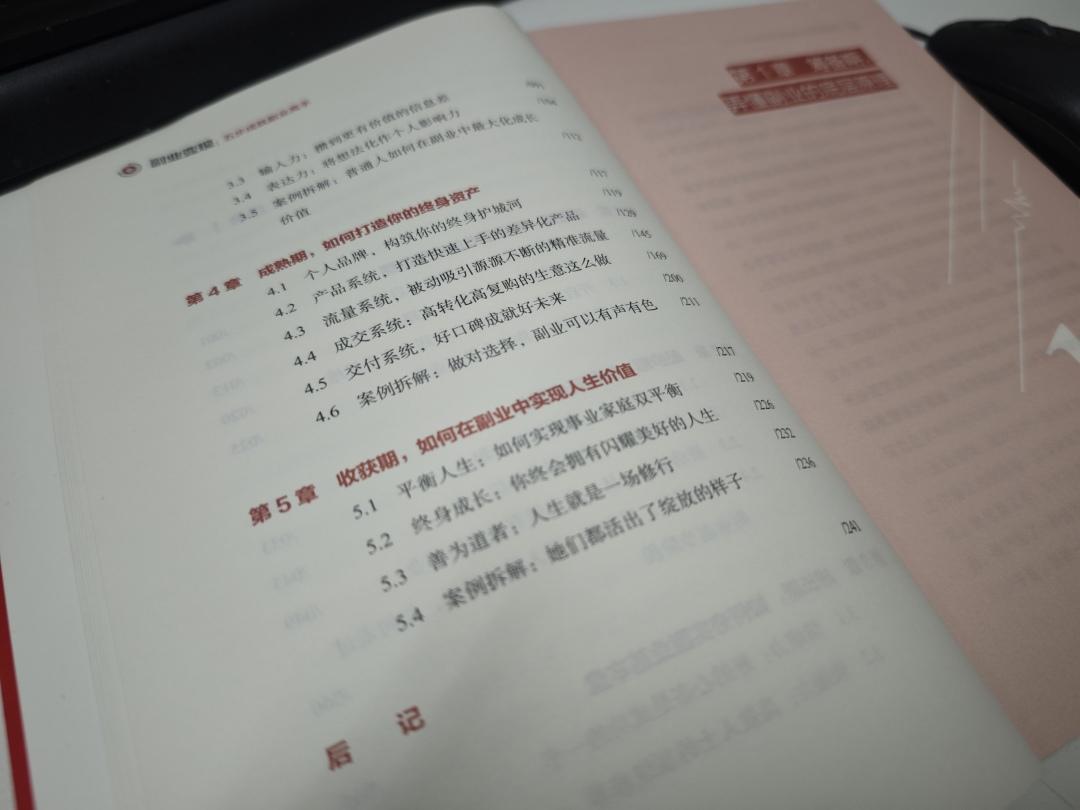 副业变现：五步成就副业高手
3.3 输入力：攒到更有价值的信息差
3.4 表达力：将想法化作个人影响力 /104
3.5 案例拆解：普通人如何在副业中最大化成长
价值 /112
第 4 章 成熟期，如何打造你的终身资产 /117
4.1 个人品牌，构筑你的终身护城河 /119
4.2 产品系统，打造快速上手的差异化产品 /129
4.3 流量系统，被动吸引源源不断的精准流量 /145
4.4 成交系统：高转化高复购的生意这么做 /169
4.5 交付系统，好口碑成就好未来 /200
4.6 案例拆解：做对选择，副业可以有声有色 /211
第 5 章 收获期，如何在副业中实现人生价值 /217
5.1 平衡人生：如何实现事业家庭双平衡 /219
5.2 终身成长：你终会拥有闪耀美好的人生 /226
5.3 善为道者：人生就是一场修行 /232
5.4 案例拆解：她们都活出了绽放的样子 /236
后 记 /241
第 1 章